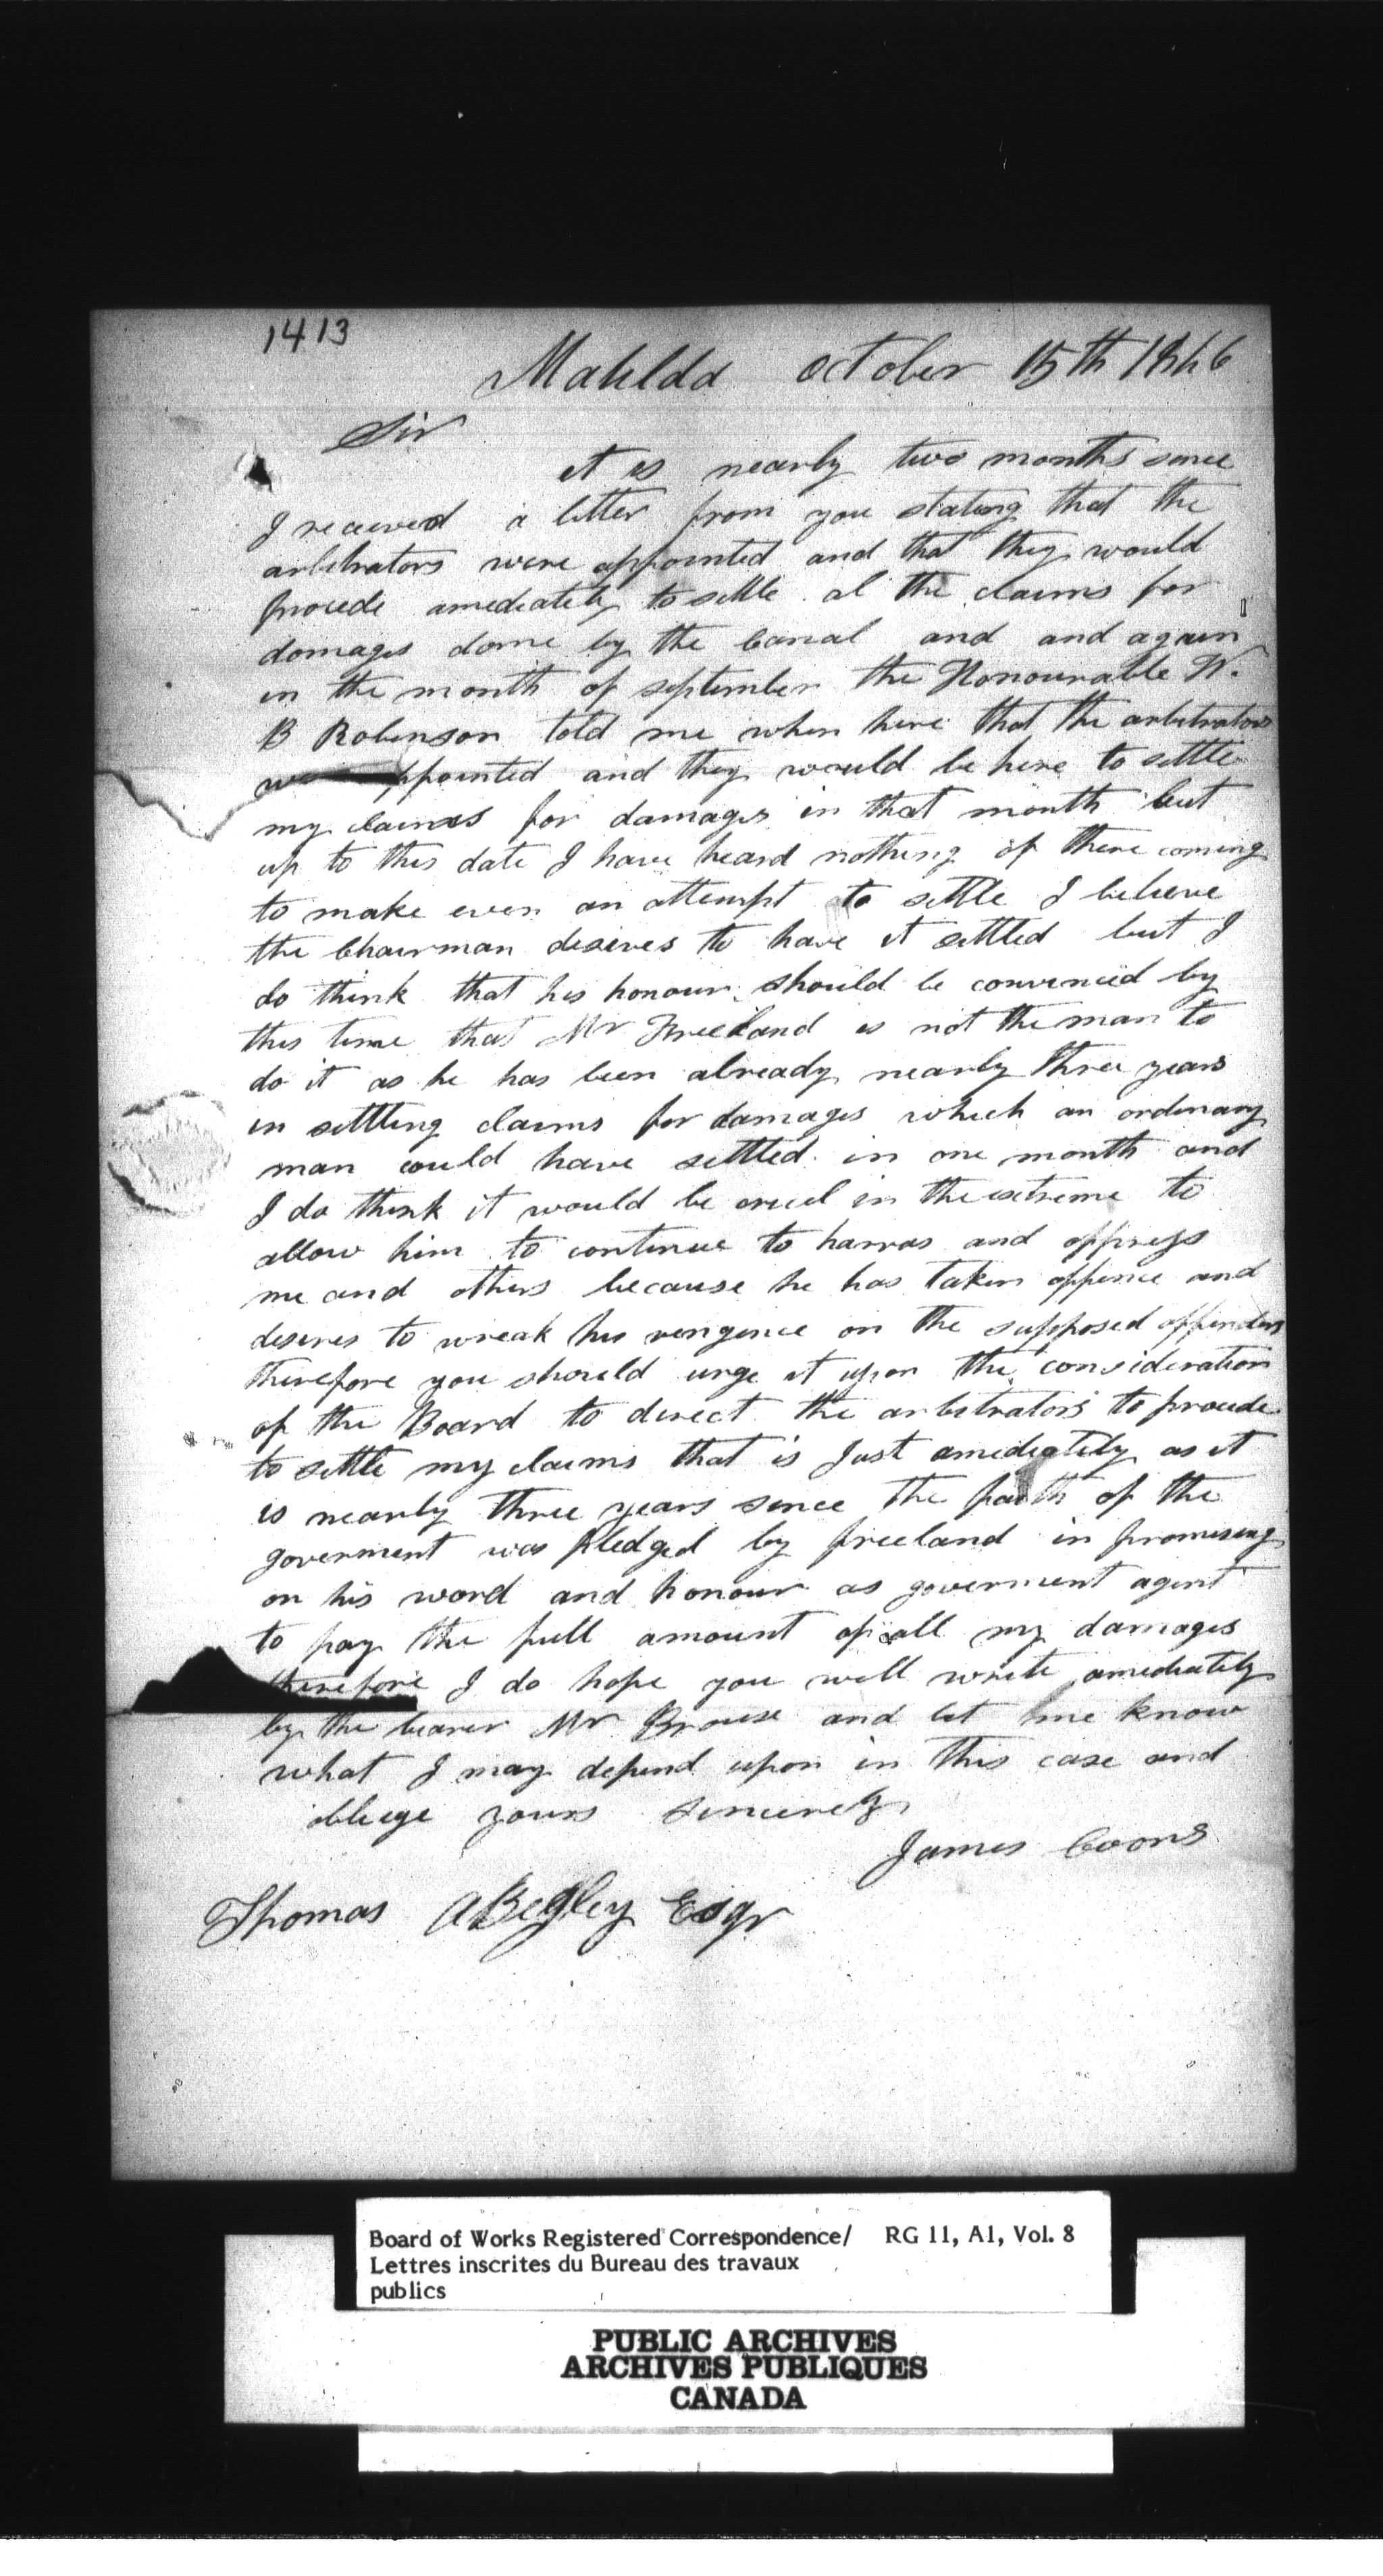 1413
Matilda October 15th 1846
Sir
it is nearly two months since
I received a letter from you stating that the
arbitrators were appointed and that they would
procede amediately to settle al the claims for
domages done by the Canal and and again
in the month of september the Honourable W.
B Robinson told me when here that the arbitrators
appointed and they would be here to settle
my claims for damages in that month but
up to this date I have heard nothing of there coming
to make even an attempt to settle I believe
the Chairman desires to have it settled but I
do think that his honour should be convinced by
this time that Mr Freeland is not the man to
do it as he has been already nearly three years
in settling claims for damages which an ordinary
man could have settled in one month and
I do think it would be cruel in the extreme to
allow him to continue to harras and oppress
me and others because he has taken offence and
desires to wreak his vengence on the supposed offenders
therefore you should urge it upon the consideration
of the Board to direct the arbitrators to procede
to settle my claims that is Just amediately as it
is nearly three years since the faith of the
goverment was Pledged by freeland in promising
on his word and honour as goverment agent
to pay the full amount of all my damages
therefore I do hope you will write amediately
by the bearer Mr Brouse and let me know
what I may depend upon in this case and
obliege yours sincerely
James Coons
Thomas A Begley Esqr
Board of Works Registered Correspondence/ RG 11, A1, Vol. 8
Lettres inscrites du Bureau des travaux
publics
PUBLIC ARCHIVES
ARCHIVES PUBLIQUES
CANADA